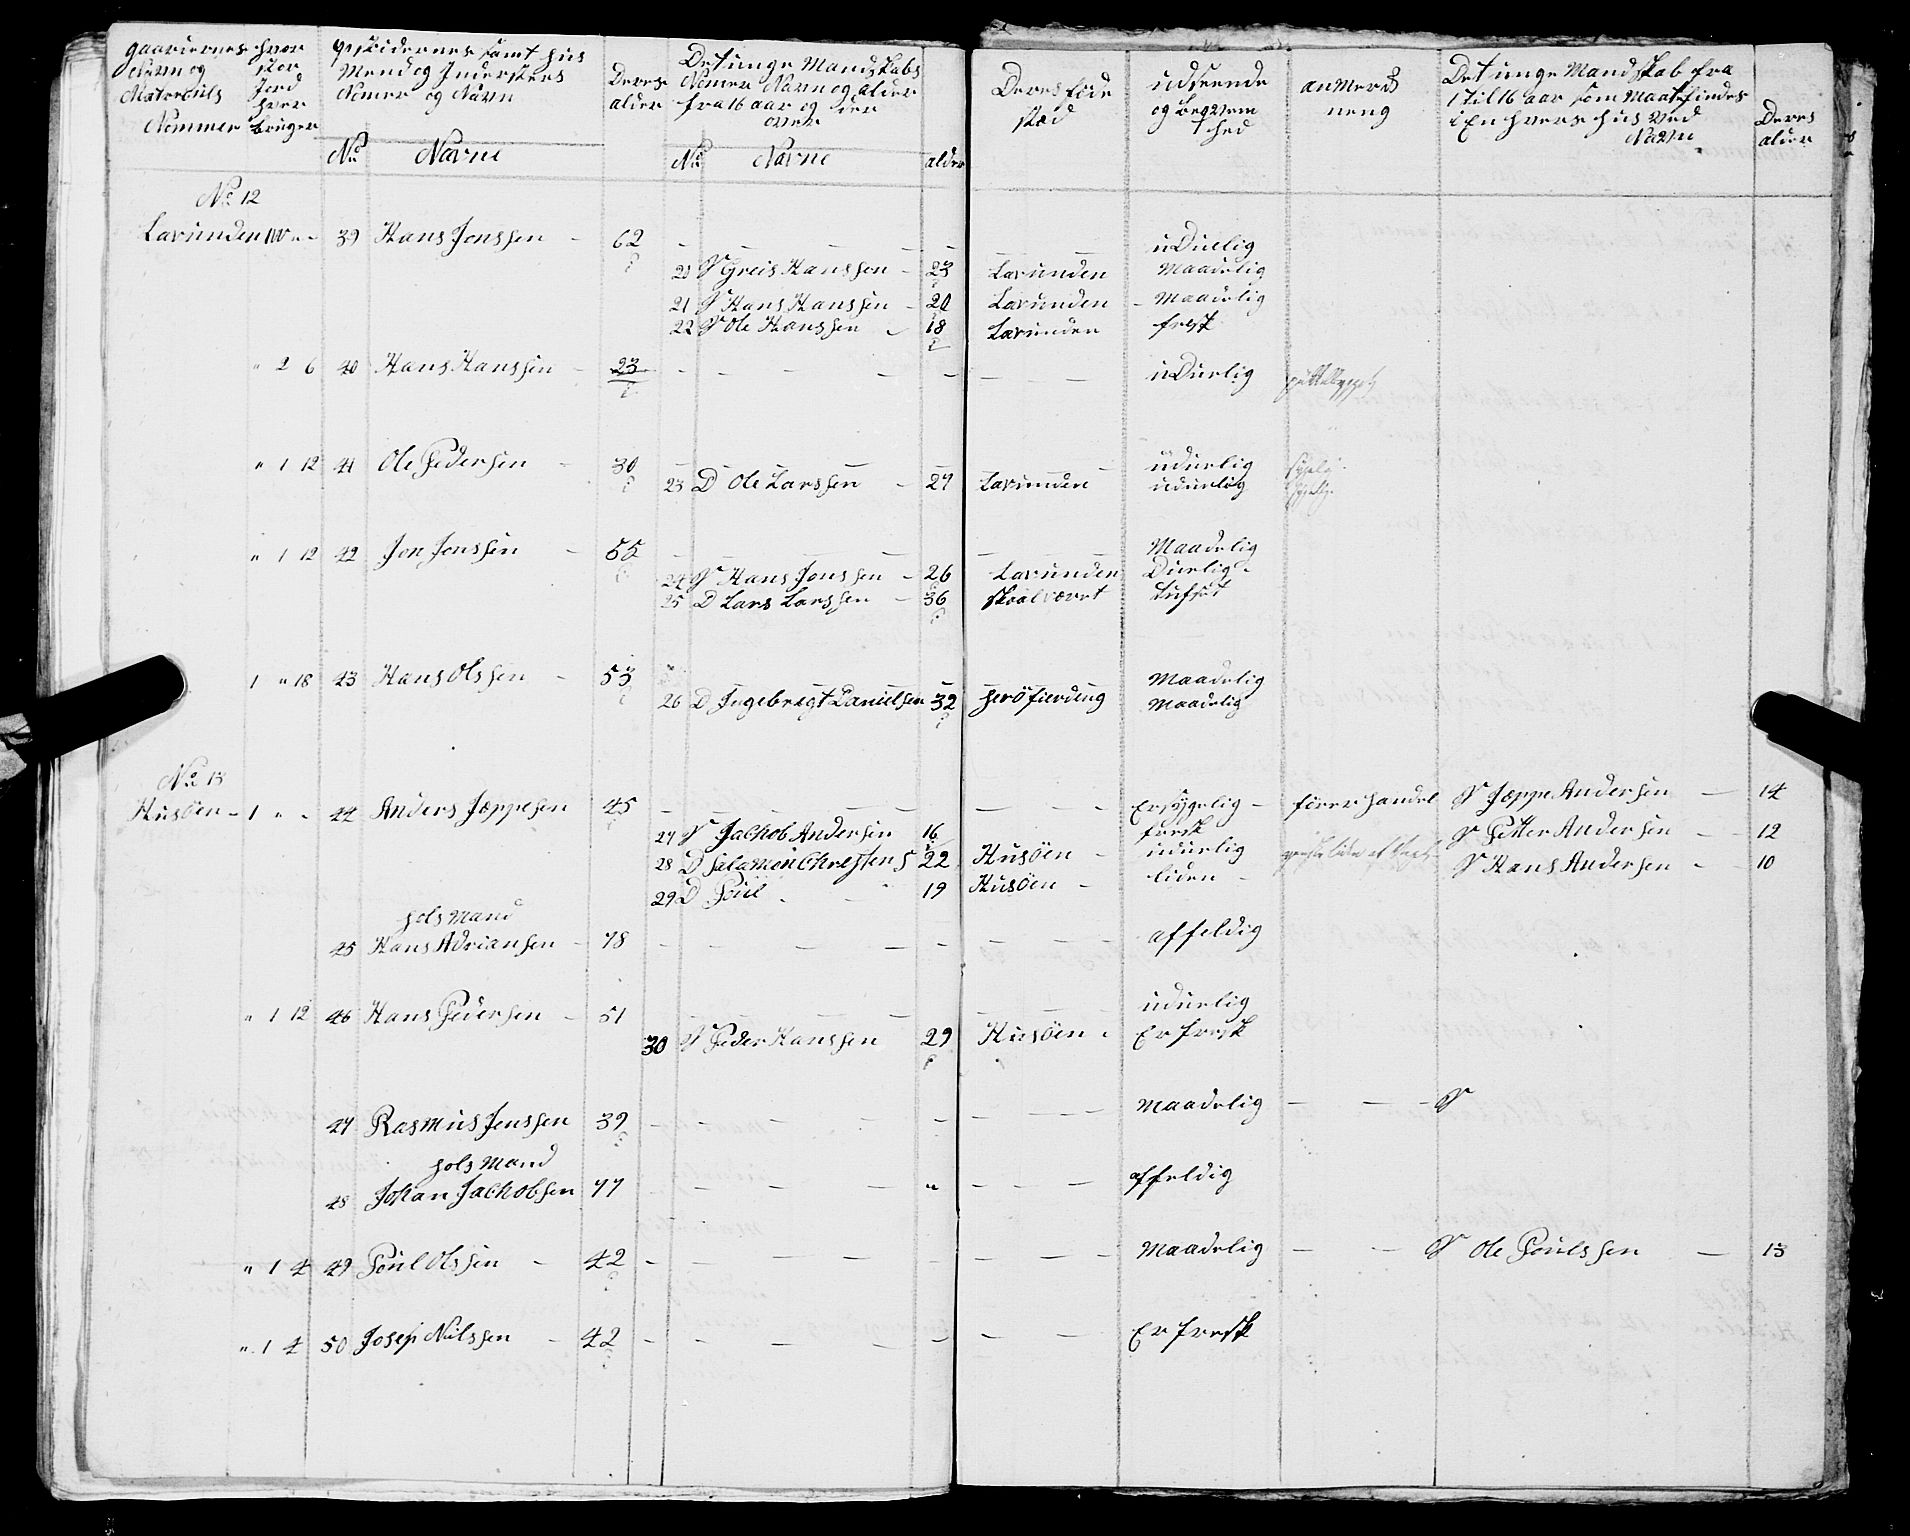 gaardernes hvor
Navn og stor
Matreculs Jord
hver
Nommer bruger
opsidernes samt hus
Mend og Indersters
Nomer og Navn
No Navne
Deres
alder
Det unge Mandskabs
Nomer Navn og alder
fra 16 aar og der
over
No Navne alder
Deres føde
stæd
udseende
og beqvem
hed
anmerk
neng
Det unge Mandskab fra
1 til 16 aar som Maatefindes
i En hvers hus ved
Navn
Deres
alder
No 12
Lavunden 39 Hans Jonssen - 62 - - - - uDuelig
20 S Greis Hanssen - 23 Lavunden Maadelig
21 S Hans Hanssen - 20 Lavunden - Maadelig
22 S Ole Hanssen - 18 Lavunden fresk
" 2 6 40 Hans Hanssen - 23 - - - - uDuelig
" 1 12 41 Ole Pedersen - 30 - - - uduelig
23 D Ole Larssen - 27 Lavunden uduelig
" 1 12 42 Jon Jonssen - 55 - - - - Maadelig
24 S Hans Jonssen - 26 Lavunden Duelig -
25 D Lars Larssen - 36 skaalværet
1 " 18 43 Hans Olssen - 53 - - - Maadelig
26 D Ingebregt Danielsen 32 herøfierding Maadelig
No 13
Husöen - 1 " - 44 Anders Jæppesen 45 - - - - Er sygelig - förer handel S Jæppe Andersen - 14
27 S Jachob Andersen 16 fersk S Petter Andersen - 12
28 D Salamon Chrestens 22 Husöen - uduelig S Hans Andersen - 10
29 D Poul - 19 Husöen - liden -
hols Mand
45 Hans Adriansen - 78 - - - - affeldig
" 1 12 46 Hans Pedersen - 51 - - - - uduelig
30 S Peder Hanssen 29 Husöen - Er fresk
47 Rasmus Jenssen 39 - - - - Maadelig - - - S
hols Mand
48 Johan Jachobsen 77 - - - - affeldig
" 1 4 49 Poul Olssen - 42 - - - - Maadelig - - S Ole Poulssen - 13
" 1 4 50 Josep Nilssen - 42 - - - - Er fresk